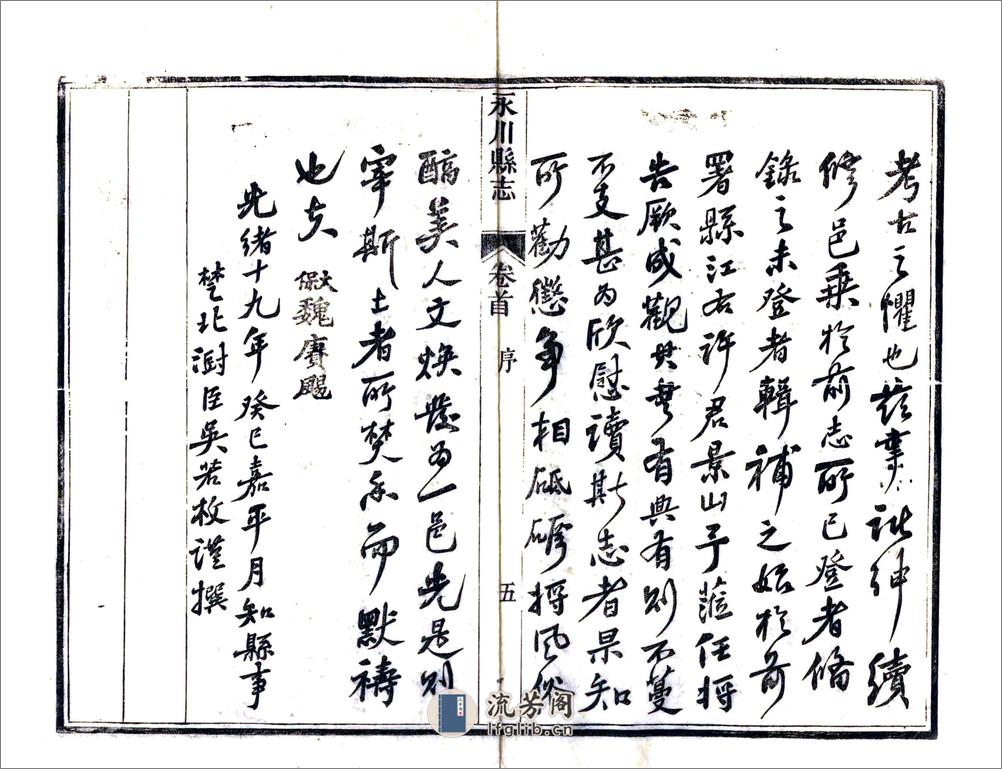 考古之懼也茲集邑紳續
修邑乘於前志所已登者備
錄之未登者輯補之始於前
署縣江右許君景山予蒞任將
告厥成觀其書有典有則不蔓
不支甚為欣慰讀斯志者果知
所勸懲爭相砥礪將風俗
永川縣志
卷首
序
五
醕美人文煥發為一邑光是則
宰斯土者所焚香而默禱
也夫
楚北澍臣吳若枚謹撰
光緒十九年癸巳嘉平月知縣事
魏賡颺
流芳阁
lfglib.cn